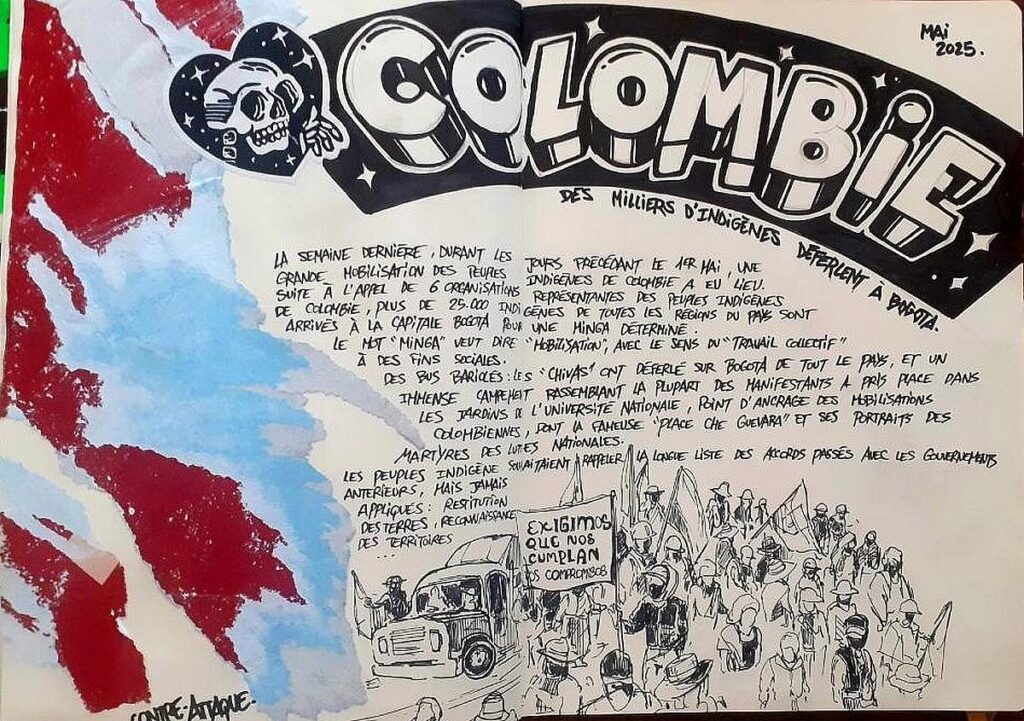 MAI
2025.
COLOMBIE
DES MILLIERS D'INDIGÈNES DÉFERLENT À BOGOTA.
LA SEMAINE DERNIÈRE, DURANT LES JOURS PRÉCÉDANT LE 1ER MAI, UNE
GRANDE MOBILISATION DES PEUPLES INDIGÈNES DE COLOMBIE A EU LIEU.
SUITE À L'APPEL DE 6 ORGANISATIONS REPRÉSENTANTES DES PEUPLES INDIGÈNES
DE COLOMBIE, PLUS DE 25.000 INDIGÈNES DE TOUTES LES RÉGIONS DU PAYS SONT
ARRIVÉS À LA CAPITALE BOGOTA POUR UNE MINGA DÉTERMINÉ.
LE MOT "MINGA" VEUT DIRE "MOBILISATION", AVEC LE SENS DU "TRAVAIL COLLECTIF"
À DES FINS SOCIALES.
DES BUS BARIOLÉS: LES "CHIVAS" ONT DÉFERLÉ SUR BOGOTA DE TOUT LE PAYS, ET UN
IMMENSE CAMPEMENT RASSEMBLANT LA PLUPART DES MANIFESTANTS A PRIS PLACE DANS
LES JARDINS DE L'UNIVERSITÉ NATIONALE, POINT D'ANCRAGE DES MOBILISATIONS
COLOMBIENNES, DONT LA FAMEUSE "PLACE CHE GUEVARA" ET SES PORTRAITS DES
MARTYRES DES LUTTES NATIONALES.
LES PEUPLES INDIGÈNE SOUHAITAIENT RAPPELER LA LONGUE LISTE DES ACCORDS PASSÉS AVEC LES GOUVERNEMENTS
ANTÉRIEURS, MAIS JAMAIS
APPLIQUÉS: RESTITUTION
DES TERRES, RECONNAISSANCE
DES TERRITOIRES
...
EXIGIMOS
QUE NOS
CUMPLAN
OS COMPROMISOS
CONTRE-ATTAQUE-